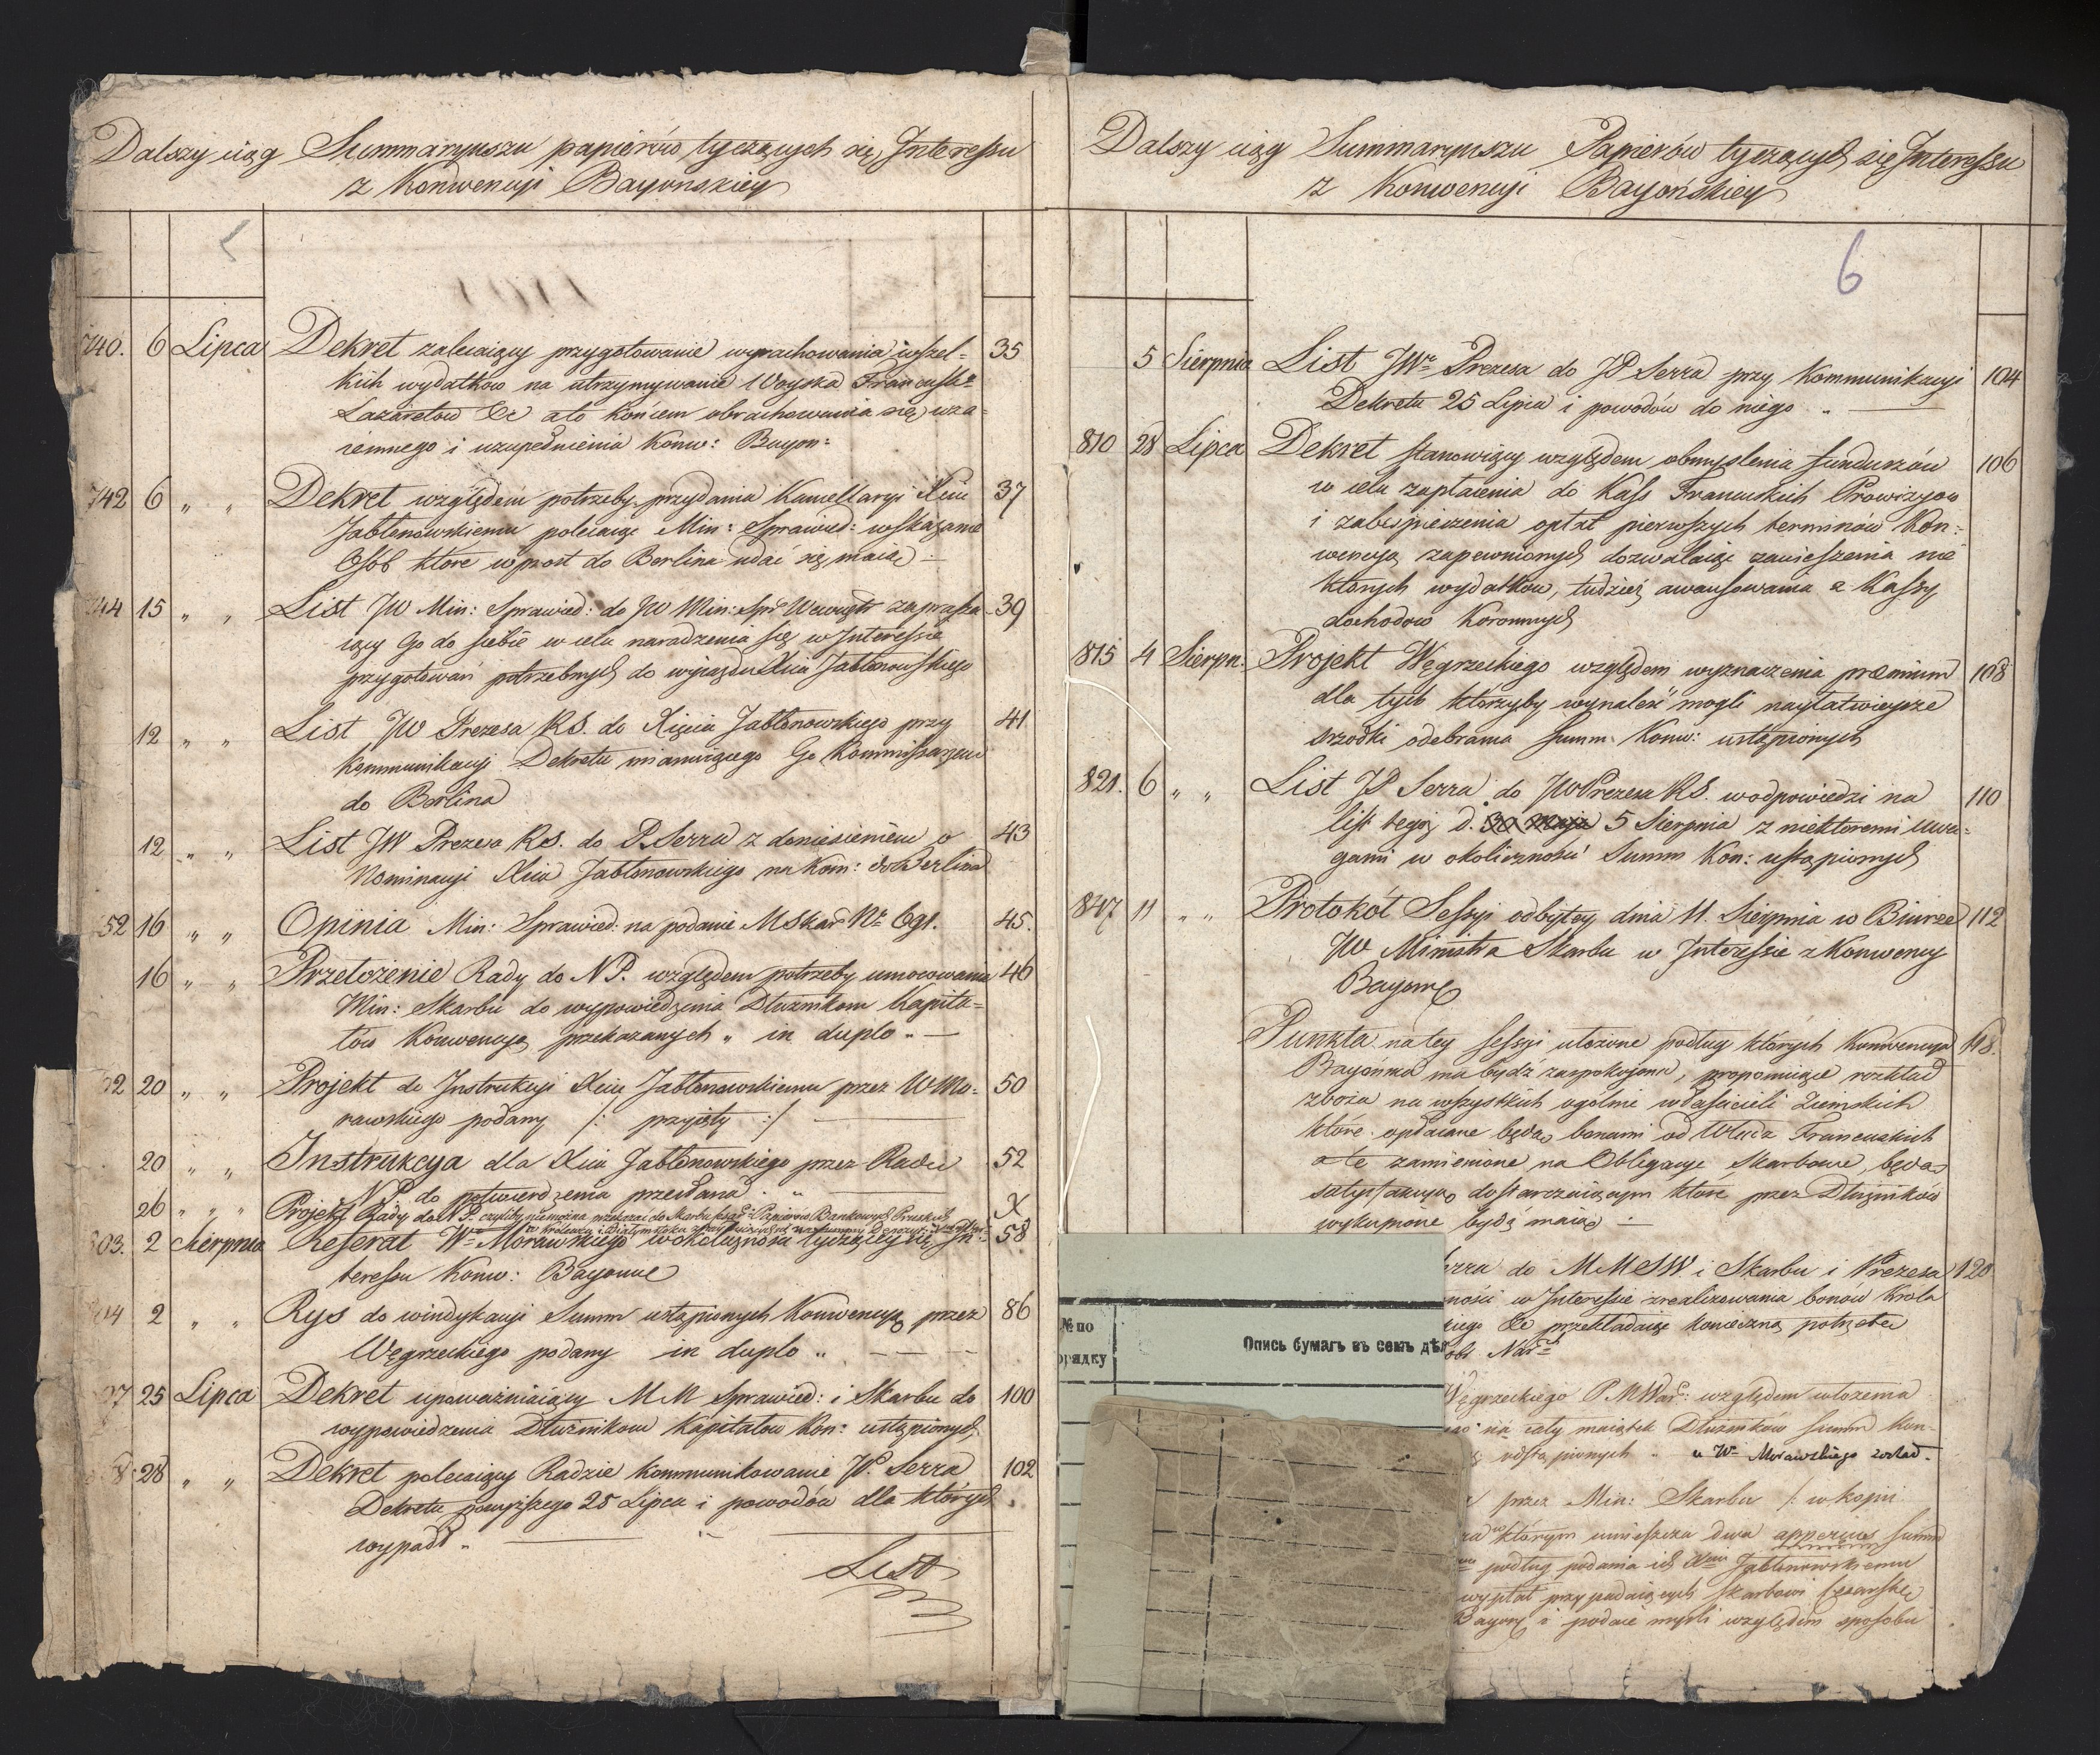 Dalszy ciąg Summaryuszu papierów tyczących się Interessu
z Konwencyi Bayonskiey
740. 6 Lipca Dekret zalecaiący przygotowanie wyrachowania wszel= 35
kich wydatkow na utrzymywanie Woyska Francusk:
Lazaretow &c a to końcem obrachowania się wza=
iemnego i uzupełnienia Konw: Bayon:
742 6 " " Dekret względem potrzeby przydania Kancellaryi Xciu 37
Jabłonowskiemu polecaiąc Min: Sprawied: wskazanie
Osób ktore wprost do Berlina udać się maią —
744 15 " " List JW Min: Sprawied: do JW Min: Spr Wewnętr zaprasza- 39
iący Go do siebie w celu naradzenia się w Interessie
przygotowań potrzebnych do wyiazdu Xcia Jabłonowskiego
12 " " List JW Prezesa RS. do Xięcia Jabłonowskiego przy 41
Kommunikacyi Dekretu mianuiącego Go Kommissarzem
do Berlina
12 " " List JW Prezesa RS. do P. Serra z doniesieniem o 43
Nominacyi Xcia Jabłonowskiego na Kom: do Berlina
52 16 " " Opinia Min: Sprawied: na podanie M Skar Nr 691. 45.
16 " " Przełożenie Rady do N P. względem potrzeby umocowania 46
Min: Skarbu do wypowiedzenia Dłużnikom Kapita=
łów Konwencyą przekazanych " in duplo " —
20 " " Projekt do Instrukcyi Xciu Jabłonowskiemu przez W Mo= 50
rawskiego podany /: przyięty :/
20 " " Instrukcya dla Xcia Jabłonowskiego przez Radę 52
N P. do potwierdzenia przesłana . "
26 " " " Projekt Rady do N P. czyliby nie można przekazać do Skarbu Papierów Bankowych Pruskich X
803. 2 Sierpnia Referat Wo Morawskiego w okoliczności tyczącey się In= 58
teressu Konw: Bayonne
804 2 " " Rys do windykacyi Summ ustąpionych Konwencyą przez 86
Węgrzeckiego podany in duplo " — — —
25 Lipca Dekret upoważniaiący M M Sprawied: i Skarbu do 100
wypowiedzenia Dłużnikom Kapitałow Kon: ustąpionych
28 " " Dekret polecaiący Radzie kommunikowanie P. Serra 102
Dekretu powyższego 25 Lipca i powodów dla których
wypadł "
List
Dalszy ciąg Summaryuszu Papierów tyczących się Interessu
z Konwencyi Bayońskiey
6
5 Sierpnia List JWo Prezesa do JP Serra przy Kommunikacyi 104
Dekretu 25 Lipca i powodów do niego "
810 28 Lipca Dekret stanowiący względem obmyślenia funduszów 106
w celu zapłacenia do Kass Francuskich Prowizyow
i zabespieczenia opłat pierwszych terminów Kon=
wencyą zapewnionych dozwalaiąc zawieszenia nie
których wydatków, tudzież awansowania z Kassy
dochodow Koronnych
815 4 Sierpn: Projekt Węgrzeckiego względem wyznaczenia præmium 108
dla tych którzyby wynaleźć mogli nayłatwieysze
srzodki odebrania Summ Konw: ustąpionych
821. 6 " " List JP Serra do JW Prezesa RS. w odpowiedzi na 110
list tegoż d. 30 Maja 5 Sierpnia z niektoremi uwa=
gami w okoliczności Summ Kon: ustąpionych
847 11 " " Protokół Sessyi odbytey dnia 11. Sierpnia w Biurze 112
JW Ministra Skarbu w Interessie z Konwency
Bayonny
Punkta na tey sessyi ułożone podług których Konwencya 118.
Bayońska ma bydź zaspokojona, proponuiące rozkład
zboża na wszystkich ogólnie właścicieli Ziemskich
które opłacane będą bonami od Władz Francuskich
a te zamienione na Obligacye Skarbowe, będą
satysfakcyą dostarczaiącym które przez Dłużników
wykupione bydź maią —
erra do M M S W i Skarbu i Prezesa 120
ności w Interessie zrealizowania bonow Króla
kiego &c przekładaiąc konieczną potrzebę
№ по
орядку
Опись бумагъ въ семъ дѣл
Węgrzeckiego P M War: względem włożenia
na cały maiątek Dłużników summ Kon-
ustąpionych " u Wo Morawskiego został.
przez Min: Skarbu /: w kopii
w którym umieszcza dwa apperçus summ
podług podania ich Xciu Jabłonowskiemu
wypłat przypadaiących skarbowi Cesarske
Bayony i podaie myśli względem sposobu